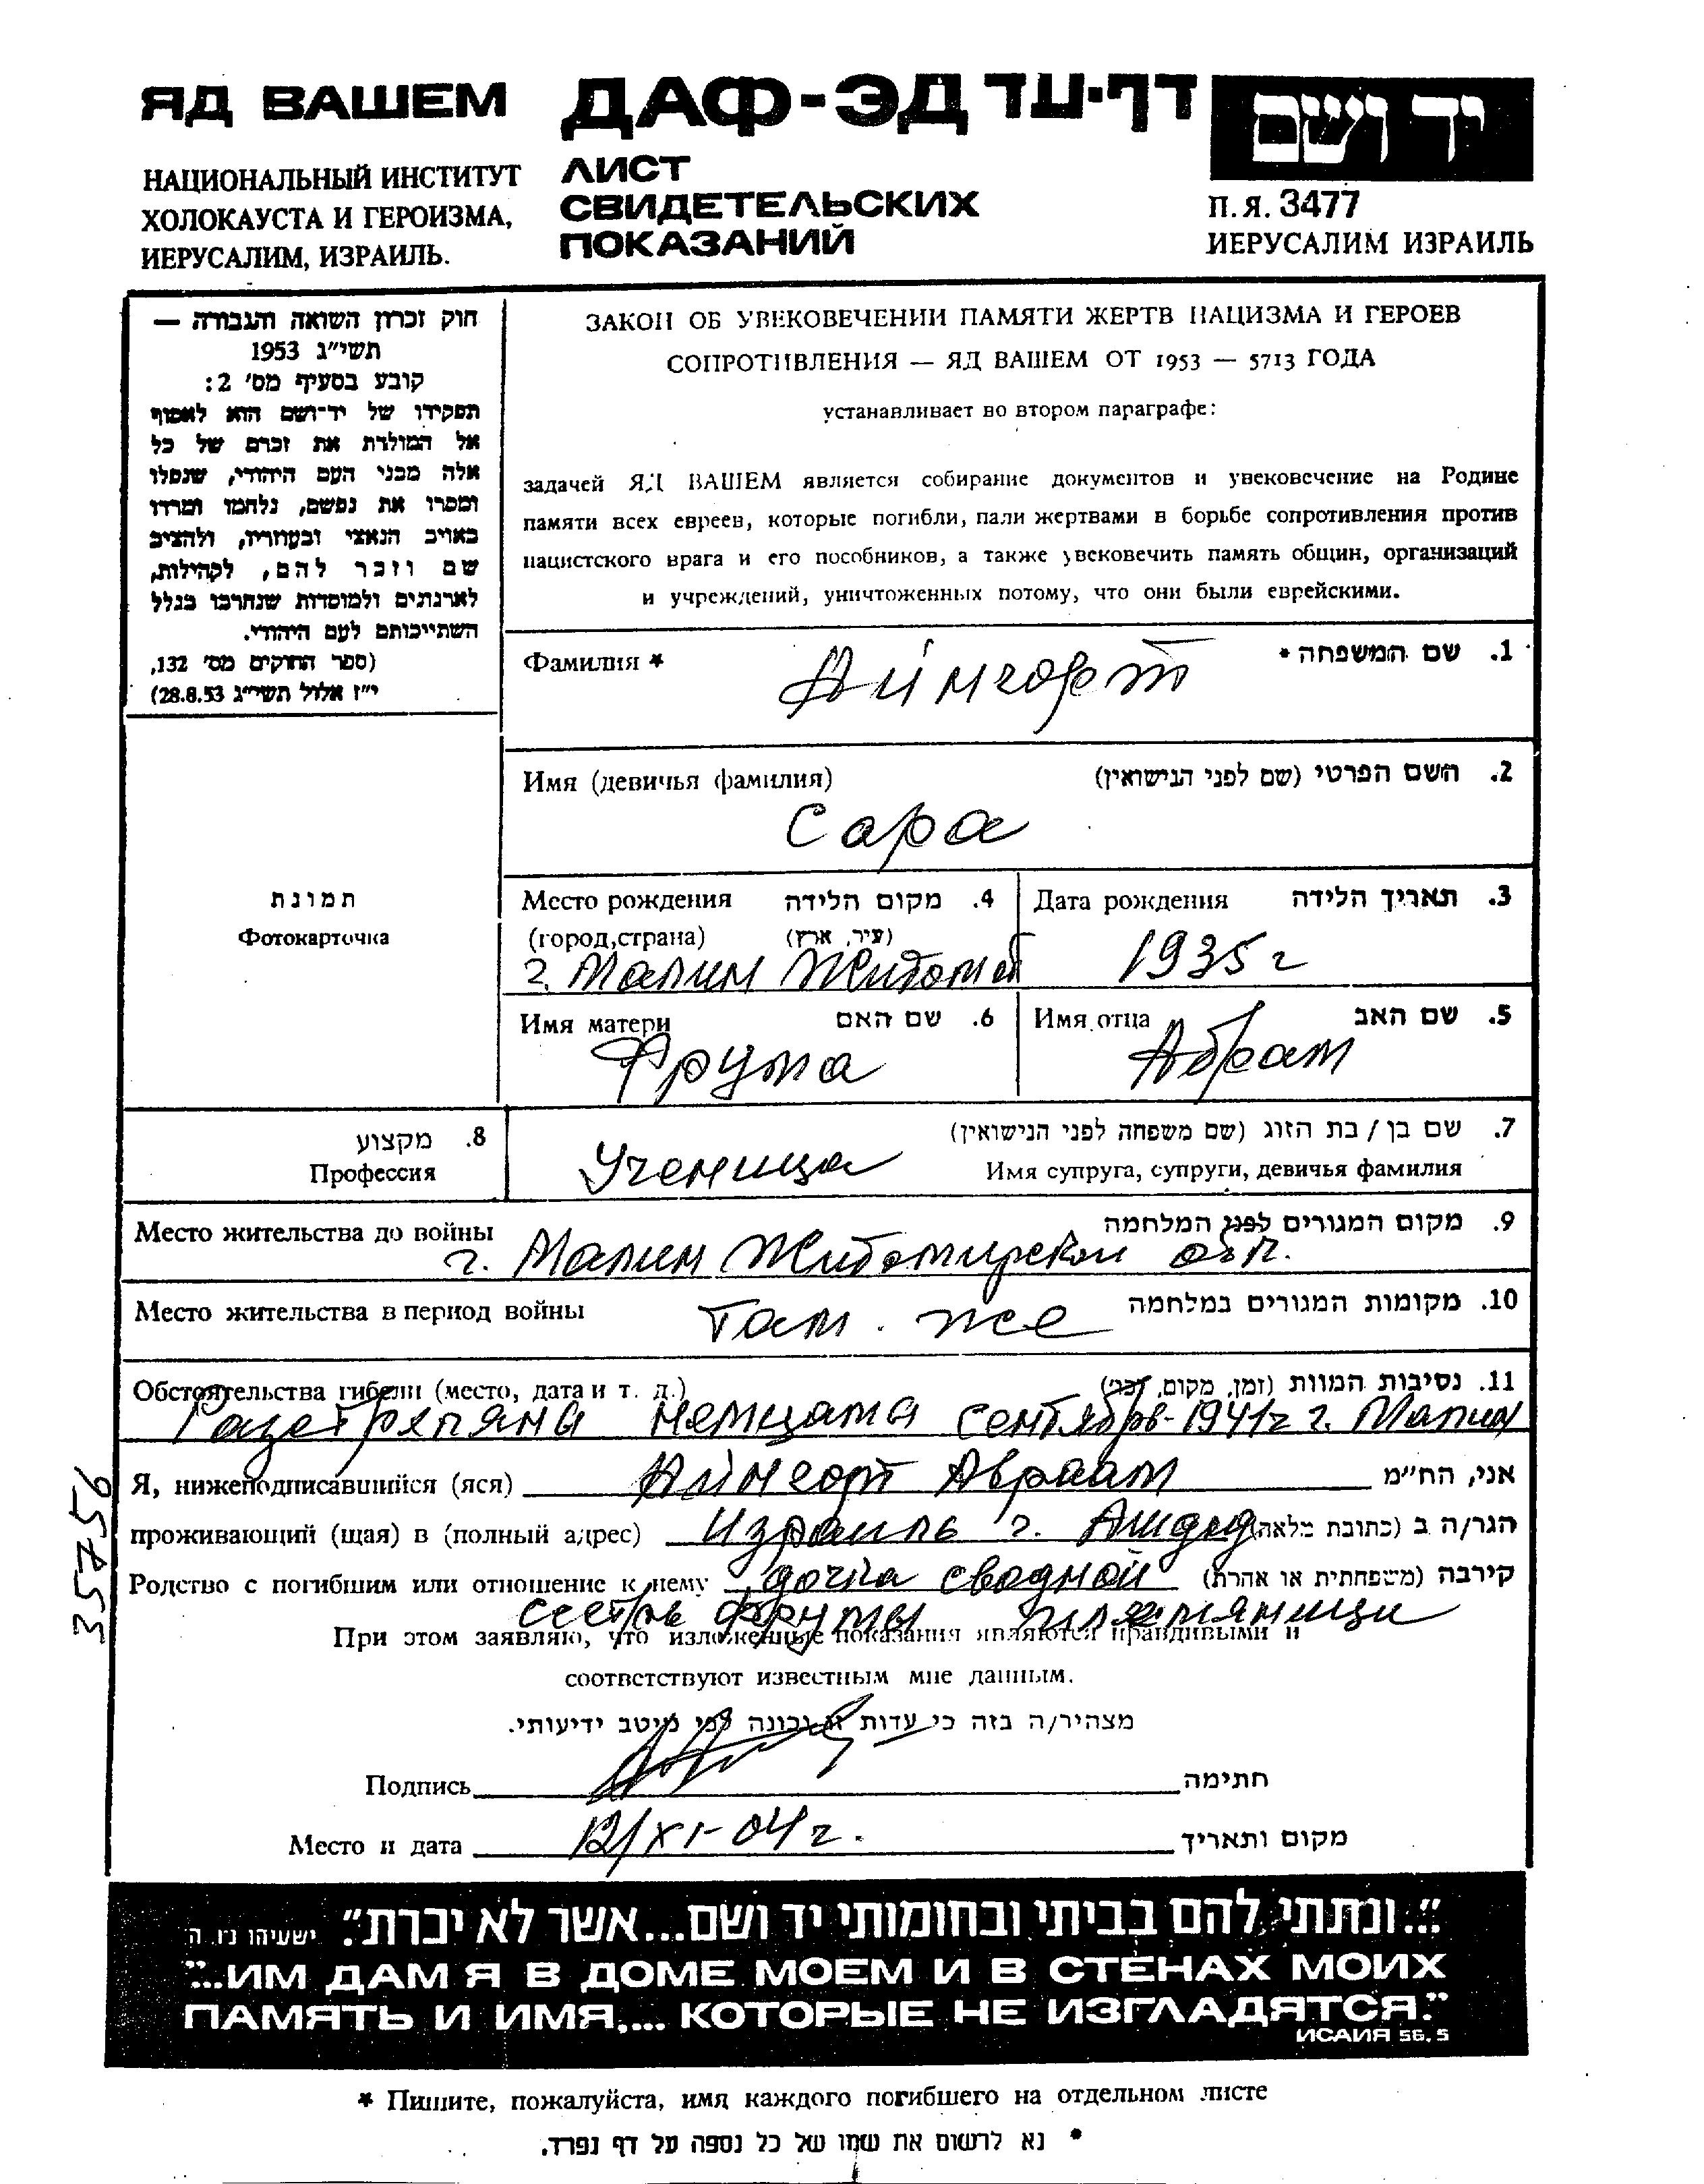 ЯД ВАШЕМ ДАФ-ЭД דף-עד יד ושם
НАЦИОНАЛЬНЫЙ ИНСТИТУТ
ХОЛОКАУСТА И ГЕРОИЗМА,
ИЕРУСАЛИМ, ИЗРАИЛЬ.
ЛИСТ
СВИДЕТЕЛЬСКИХ
ПОКАЗАНИЙ
П.Я. 3477
ИЕРУСАЛИМ ИЗРАИЛЬ
חוק זכרון השואה והגבורה —
תשי"ג 1953
קובע בסעיף מס' 2:
תפקידו של יד-ושם הוא לאסוף
אל המולדת את זכרם של כל
אלה מבני העם היהודי, שנפלו
ומסרו את נפשם, נלחמו ומרדו
באויב הנאצי ובעוזריו, ולהציב
שם וזכר להם, לקהילות,
לארגונים ולמוסדות שנחרבו בגלל
השתייכותם לעם היהודי.
(ספר החוקים מס' 132,
י"ז אלול תשי"ג 28.8.53)
ЗАКОН ОБ УВЕКОВЕЧЕНИИ ПАМЯТИ ЖЕРТВ НАЦИЗМА И ГЕРОЕВ
СОПРОТИВЛЕНИЯ — ЯД ВАШЕМ ОТ 1953 — 5713 ГОДА
устанавливает во втором параграфе:
задачей ЯД ВАШЕМ является собирание документов и увековечение на Родине
памяти всех евреев, которые погибли, пали жертвами в борьбе сопротивления против
нацистского врага и его пособников, а также увековечить память общин, организаций
и учреждений, уничтоженных потому, что они были еврейскими.
Фамилия * Айнгорт 1. שם המשפחה *
Имя (девичья фамилия) 2. השם הפרטי (שם לפני הנישואין)
Сара
תמונת
Фотокарточка
Место рождения 4. מקום הלידה
(город,страна) (עיר, ארץ)
г. Малин Житом об
Дата рождения 3. תאריך הלידה
1935 г
Имя матери 6. שם האם
Фрума
Имя отца 5. שם האב
Абрам
8. מקצוע
Профессия
Ученица
7. שם בן / בת הזוג (שם משפחה לפני הנישואין)
Имя супруга, супруги, девичья фамилия
Место жительства до войны 9. מקום המגורים לפני המלחמה
г. Малин Житомирской обл.
Место жительства в период войны Там. же 10. מקומות המגורים במלחמה
Обстоятельства гибели (место, дата и т. д.) 11. נסיבות המוות (זמן, מקום, וכו')
Расстреляна немцама сентябрь-1941г г. Малин
Я, нижеподписавшийся (яся) Айнгорт Авраам אני, הח"מ
проживающий (щая) в (полный адрес) Израиль г. Ашдод הגר/ה ב (כתובת מלאה)
Родство с погибшим или отношение к нему дочка сводной קירבה (משפחתית או אחרת)
сестры Фрумы племянници
При этом заявляю, что изложенные показания являются правдивыми и
соответствуют известным мне данным.
מצהיר/ה בזה כי עדות זו נכונה לפי מיטב ידיעותי.
Подпись חתימה
Место и дата 12/XI-04г. מקום ותאריך
35756
"..ונתתי להם בביתי ובחומותי יד ושם...אשר לא יכרת". ישעיהו נ"ו. ה
"...ИМ ДАМ Я В ДОМЕ МОЕМ И В СТЕНАХ МОИХ
ПАМЯТЬ И ИМЯ,... КОТОРЫЕ НЕ ИЗГЛАДЯТСЯ."
ИСАИЯ 56, 5
* Пишите, пожалуйста, имя каждого погибшего на отдельном листе
* נא לרשום את שמו של כל נספה על דף נפרד.